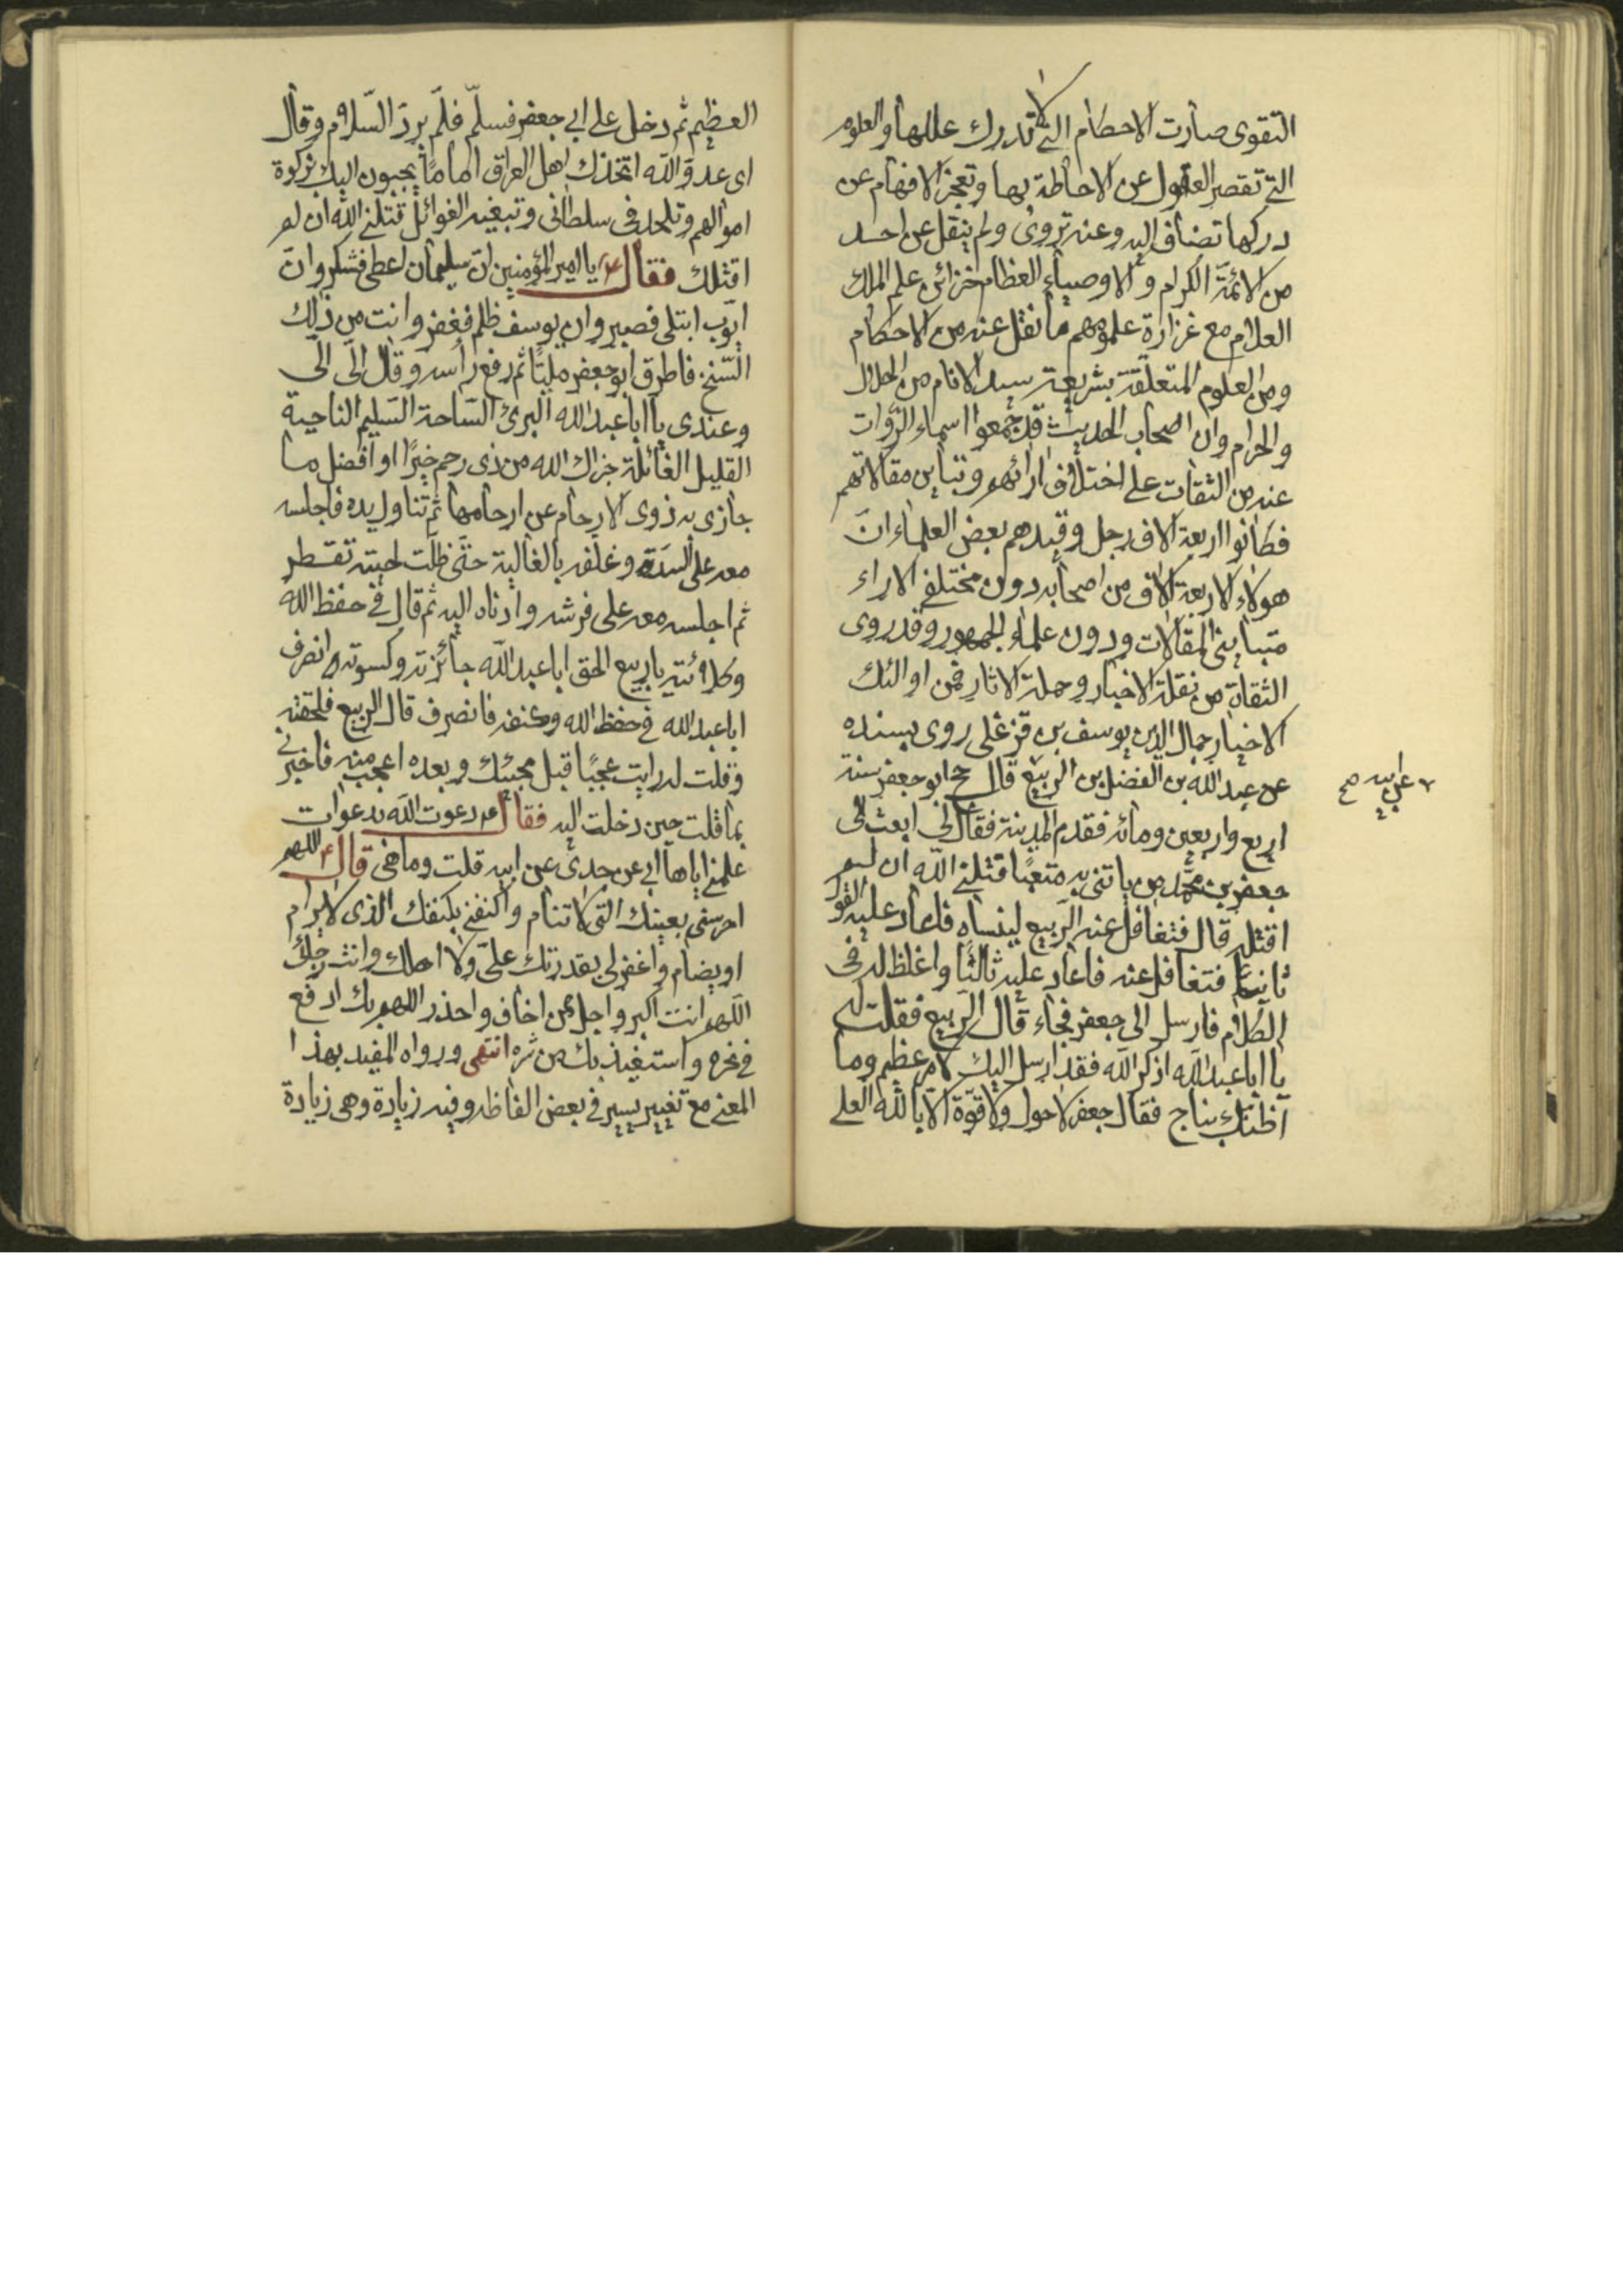 التقوى صارت الاحكام التي لا تدرك عللها والعلوم
التي تقصر العقول عن الاحاطة بها وتعجز الافهام عن
دركها تضاف اليه وعنه تروى ولم ينقل عن احد
من الائمة الكرام والاوصياء العظام خزائن علم الملك
العلام مع غزارة علومهم ما نقل عنه من الاحكام
ومن العلوم المتعلقة بشريعة سيد الانام من الحلال
والحرام وان اصحاب الحديث قد جمعوا اسماء الرّوات
عنه من الثقات على اختلاف ارائهم وتباين مقالاتهم
فكانوا اربعة الاف رجل وقيدهم بعض العلماء انّ
هولاء الاربعة الاف من اصحابه دون مختلفي الاراء
متبايني المقالات ودون علماء الجمهور وقد روى
الثقاة من نقلة الاخبار وحملة الاثار فمن اولئك
الاخيار جمال الدين يوسف بن قزغلى روى بسنده
عن عبد الله بن الفضل بن الربيع قال حج ابو جعفر سنة
عن ابيه صح
اربع واربعين ومائه فقدم المدينة فقال لي ابعث الى
جعفر بن محمّد من ياتنى به متعبًا قتلني الله ان لم
اقتله قال فتغافل عنه الربيع لينساه فاعاد عليه القول
ثانيًا فتغافل عنه فاعاد عليه ثالثًا واغلظ له في
الكلام فارسل الى جعفر فجاء قال الربيع فقلت له
يا ابا عبد الله اذكر الله فقد ارسل اليك لامر عظيم وما
اظنك بناج فقال جعفر لا حول ولا قوّة الا بالله العلي
العظيم ثم دخل على ابي جعفر فسلّم فلم يردّ السّلام وقال
اى عدوّ الله اتخذك اهل العراق اماماً يجبون اليك زكوة
اموالهم وتلحد في سلطانى وتبغيه الغوائل قتلني الله ان لم
اقتلك فقال ع يا امير المؤمنين انّ سليمان اعطى فشكر وان
ايّوب ابتلى فصبر وان يوسف ظلم فغفر وانت من ذلك
السّنخ فاطرق ابو جعفر مليّاً ثم رفع رأسه وقال اليّ اليّ
وعندى يا ابا عبد الله البرىء السّاحة السّليم الناحية
القليل الغائلة جزاك الله من ذى رحم خيرًا او افضل ما
جازى به ذوى الارحام عن ارحامها ثم تناول يده فاجلسه
معه على السدة وغلفه بالغالية حتى ظلّت لحيته تقطر
ثم اجلسه معه على فرشه وادناه اليه ثم قال في حفظ الله
وكلائته يا ربيع الحق ابا عبد الله جائزته وكسوته انصرف
ابا عبد الله في حفظ الله وكنفه فانصرف قال الربيع فلحقته
وقلت له رايت عجبًا قبل مجيئك وبعده اعجب منه فاخبرني
بما قلت حين دخلت اليه فقال ع دعوت الله بدعوات
علمني اياها ابي عن جدى عن ابيه قلت وما هي قال ع اللهم
احرسني بعينك التي لا تنام واكنفني بكنفك الذى لا يرام
او يضام واغفر لي بقدرتك عليّ ولا اهلك وانت رجائي
اللهم انت اكبر واجل ممن اخاف واحذر اللهم بك ادفع
في نحره واستعيذ بك من شره انتهى ورواه المفيد بهذا
المعنى مع تغيير يسير في بعض الفاظه وفيه زيادة وهى زيادة